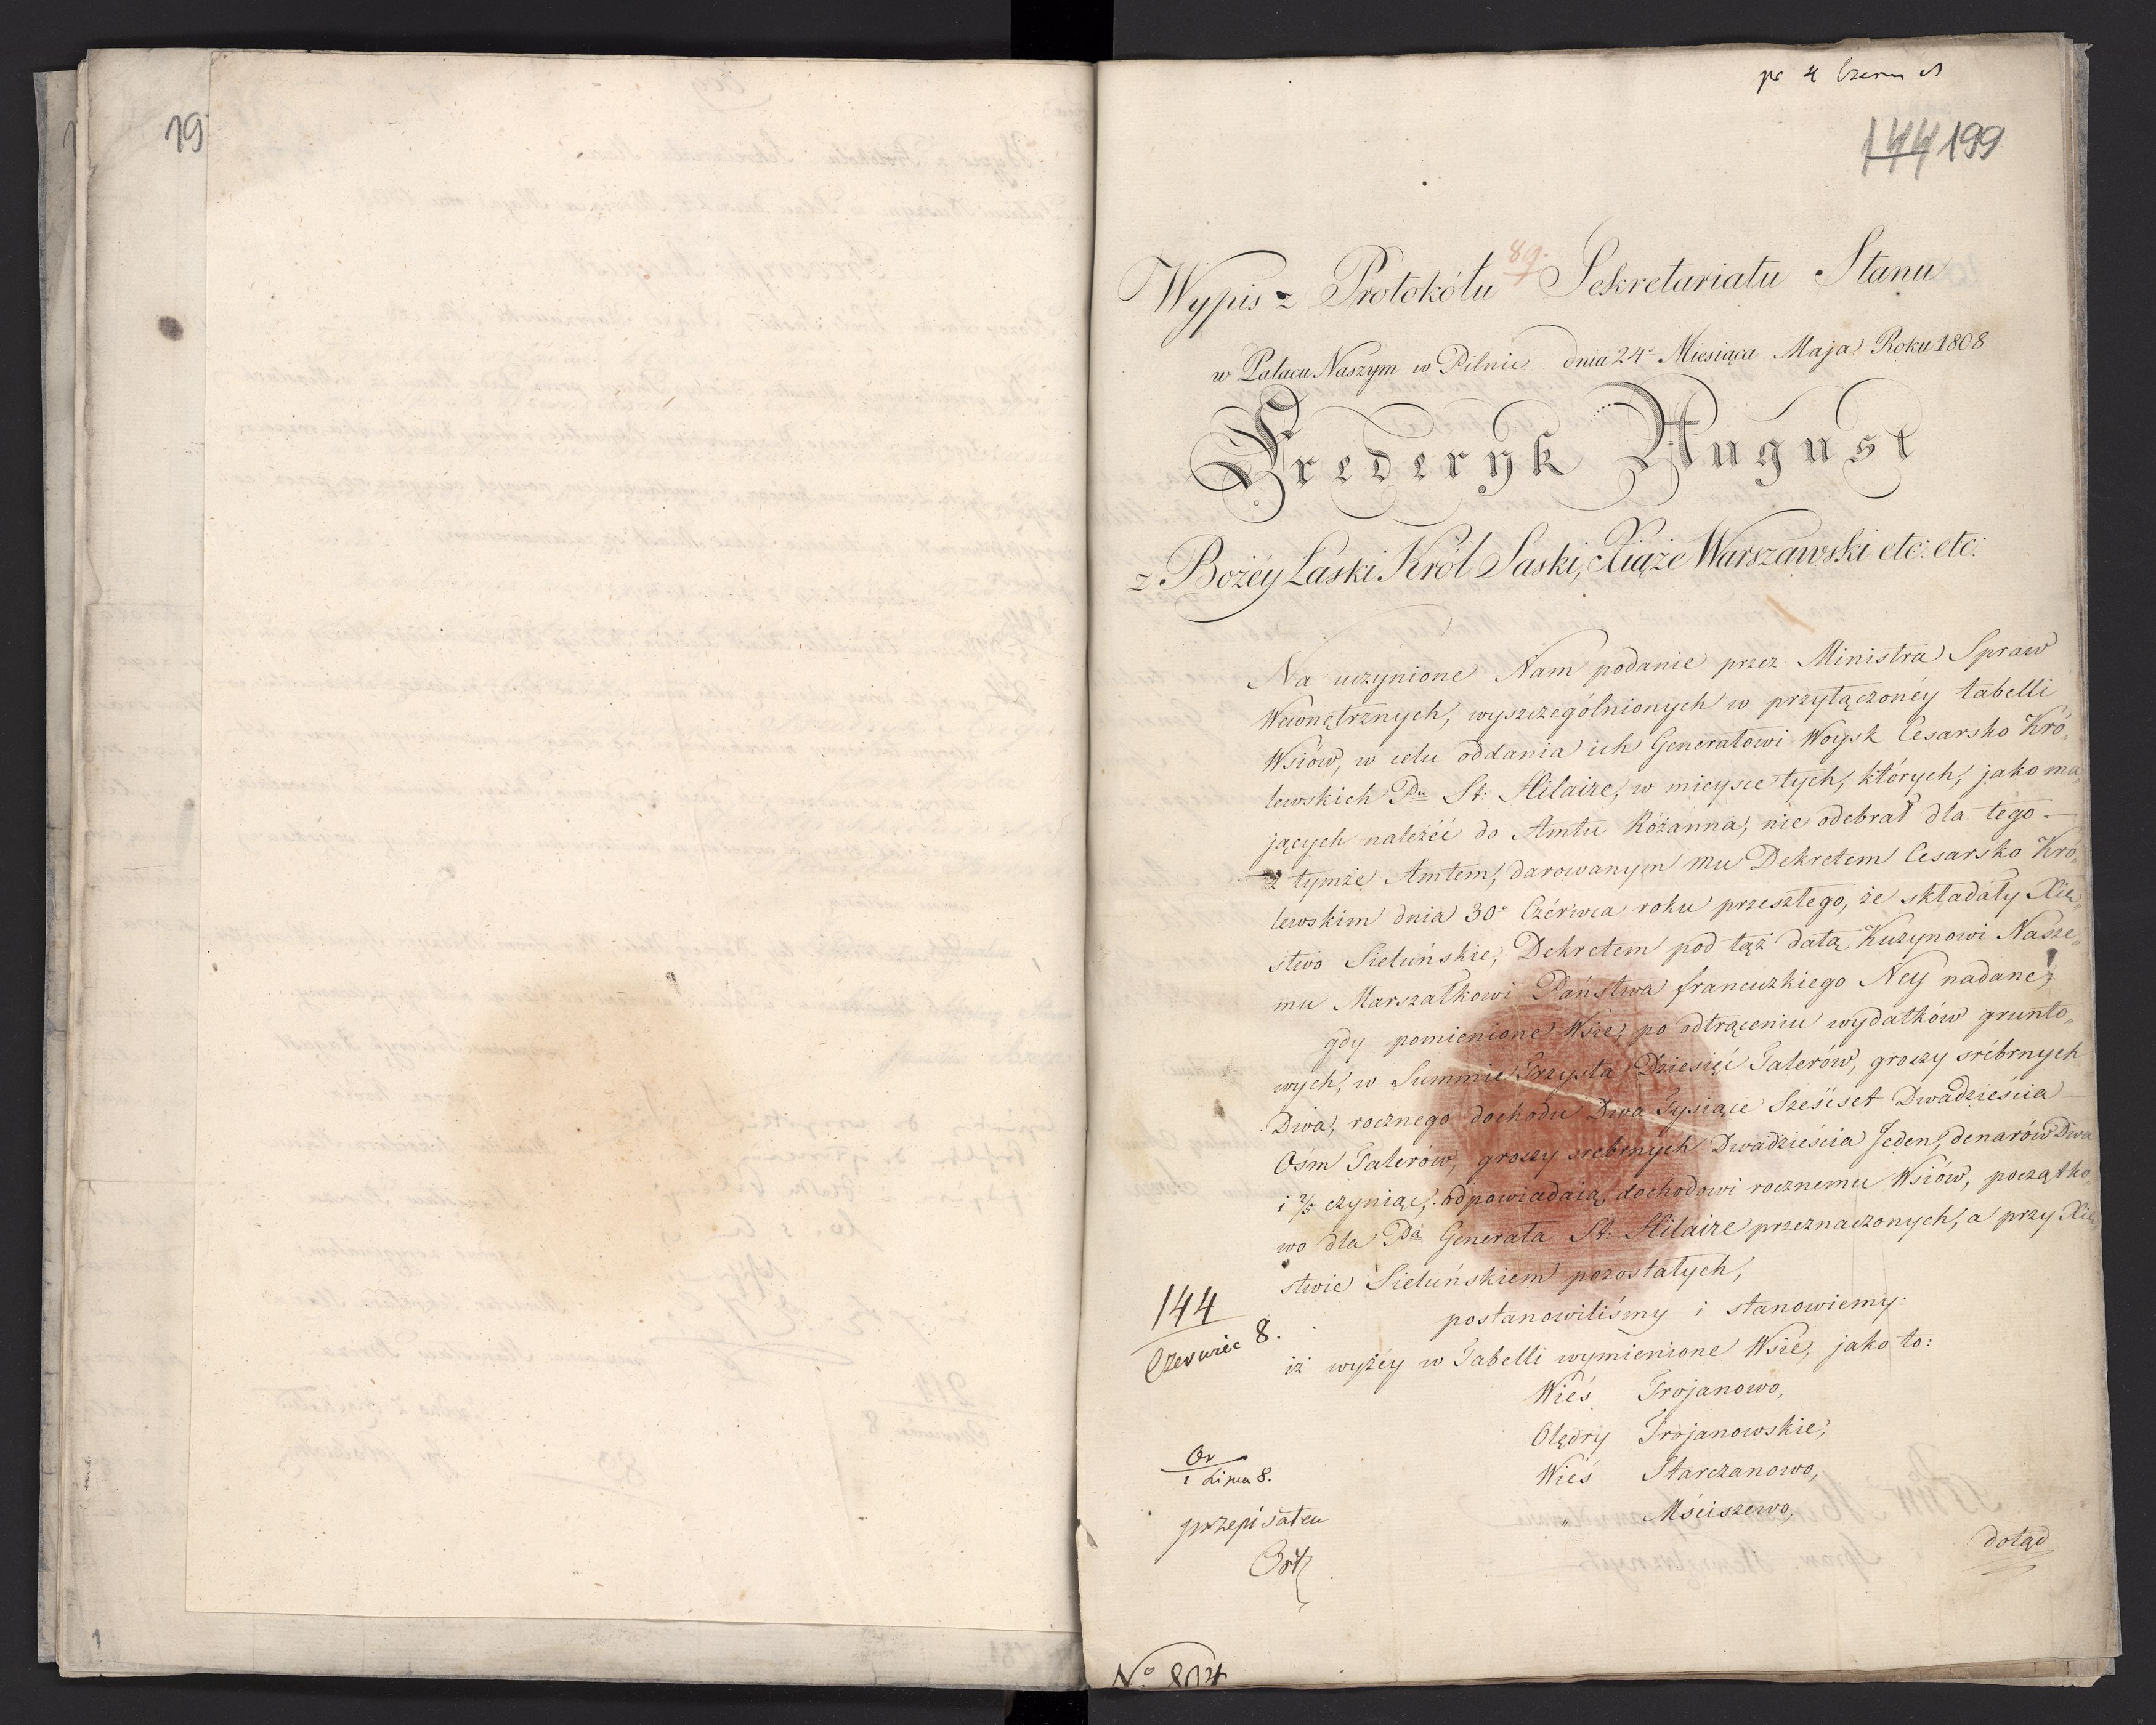 19
144 199
89.
Wypis z Protokółu Sekretariatu Stanu
w Pałacu Naszym w Pilnic dnia 24º Miesiąca Maja Roku 1808
Frederyk August
z Bożéy Łaski Król Saski, Xiąże Warszawski etc: etc:
Na uczynione Nam podanie przez Ministra Spraw
Wewnętrznych, wyszczególnionych w przyłączonéy tabelli
Wsiów, w celu oddania ich Generałowi Woysk Cesarsko Kró„
lewskich Pu St: Hilaire, w mieysce tych, których, jako ma„
jących należéć do Amtu Różanna, nie odebrał dla tego —
z tymże Amtem, darowanym mu Dekretem Cesarsko Kró„
lewskim dnia 30º Czérwca roku przeszłego, że składały Xię„
stwo Sieluńskie, Dekretem pod tąż datą Kuzynowi Nasze„
mu Marszałkowi Państwa francuzkiego Ney nadane;
gdy pomienione Wsie, po odtrąceniu wydatków grunto„
wych, w Summie Trzysta Dziesięć Talerów, groszy srébrnych
Dwa, rocznego dochodu Dwa Tysiące Sześćset Dwadzieścia
Ośm Talerów, groszy srebrnych Dwadzieścia Jeden, denarów Dwa
i 2/5 czyniąc, odpowiadaią dochodowi rocznemu Wsiów, początko„
wo dla Pa Generała St: Hilaire przeznaczonych, a przy Xię„
stwie Sieluńskiem pozostałych,
postanowiliśmy i stanowiemy:
iż wyżéy w Tabelli wymienione Wsie, jako to:
Wieś Trojanowo,
Olędry Trojanowskie,
Wieś Starczanowo,
„ Mściszewo,
dotąd
144
Czerwiec 8.
8.
przepisałem
Nº 804